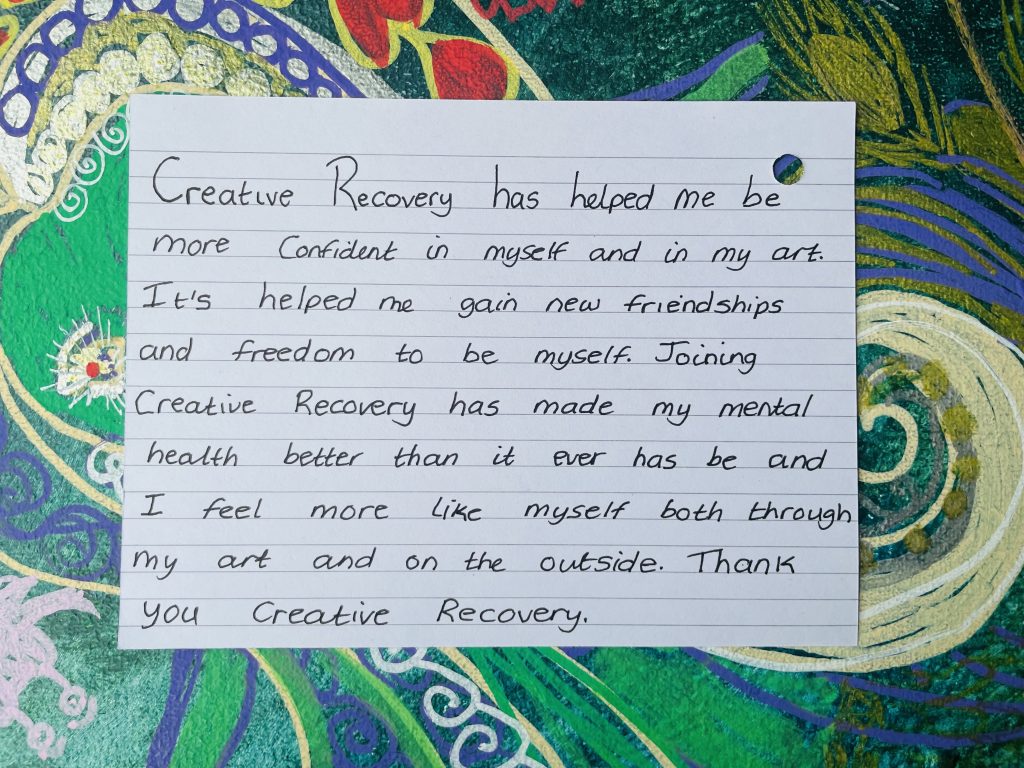 Creative Recovery has helped me be
more Confident in myself and in my art.
It's helped me gain new friendships
and freedom to be myself. Joining
Creative Recovery has made my mental
health better than it ever has be and
I feel more like myself both through
my art and on the outside. Thank
you Creative Recovery.